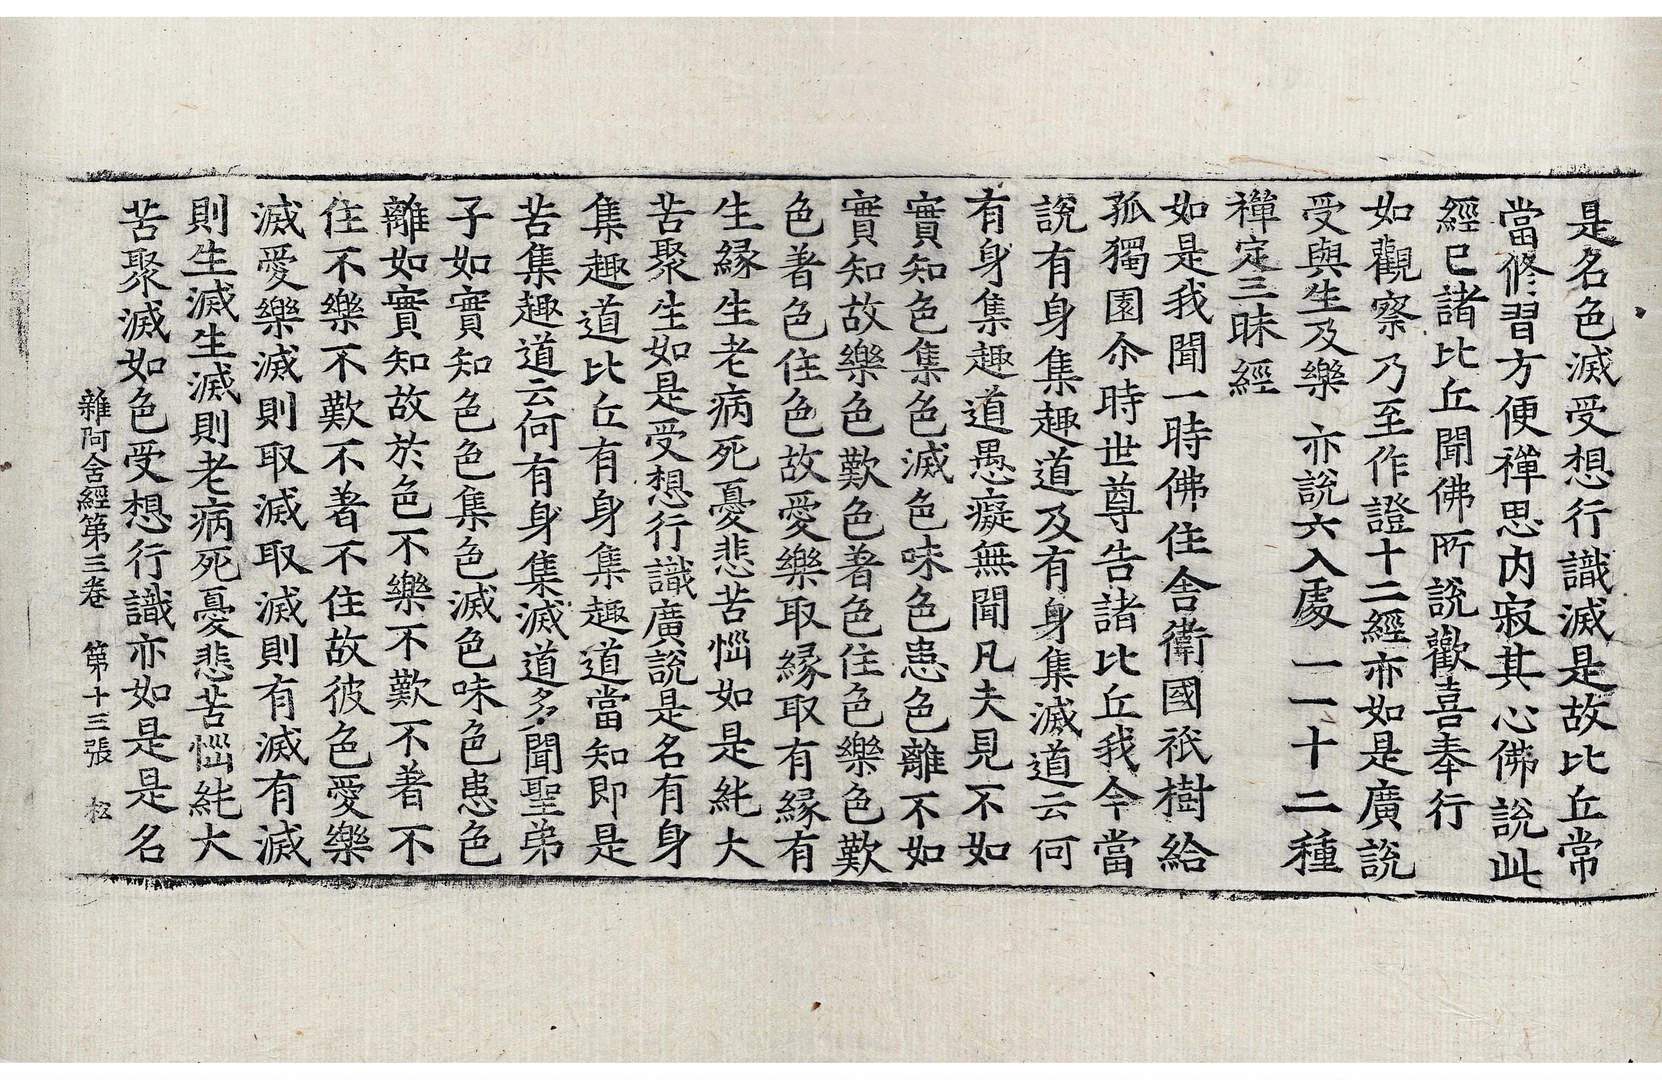 是名色滅受想行識滅是故比丘常
當修習方便禪思內寂其心佛說此
經已諸比丘聞佛所說歡喜奉行
如觀察乃至作證十二經亦如是廣說
受與生及樂 亦說六入處 一一十二種
禪定三昧經
如是我聞一時佛住舍衛國祇樹給
孤獨園尒時世尊告諸比丘我今當
說有身集趣道及有身集滅道云何
有身集趣道愚癡無聞凡夫見不如
實知色集色滅色味色患色離不如
實知故樂色歎色著色住色樂色歎
色著色住色故愛樂取緣取有緣有
生緣生老病死憂悲苦惱如是純大
苦聚生如是受想行識廣說是名有身
集趣道比丘有身集趣道當知即是
苦集趣道云何有身集滅道多聞聖弟
子如實知色色集色滅色味色患色
離如實知故於色不樂不歎不著不
住不樂不歎不著不住故彼色愛樂
滅愛樂滅則取滅取滅則有滅有滅
則生滅生滅則老病死憂悲苦惱純大
苦聚滅如色受想行識亦如是是名
雜阿含經第三卷 第十三張 松